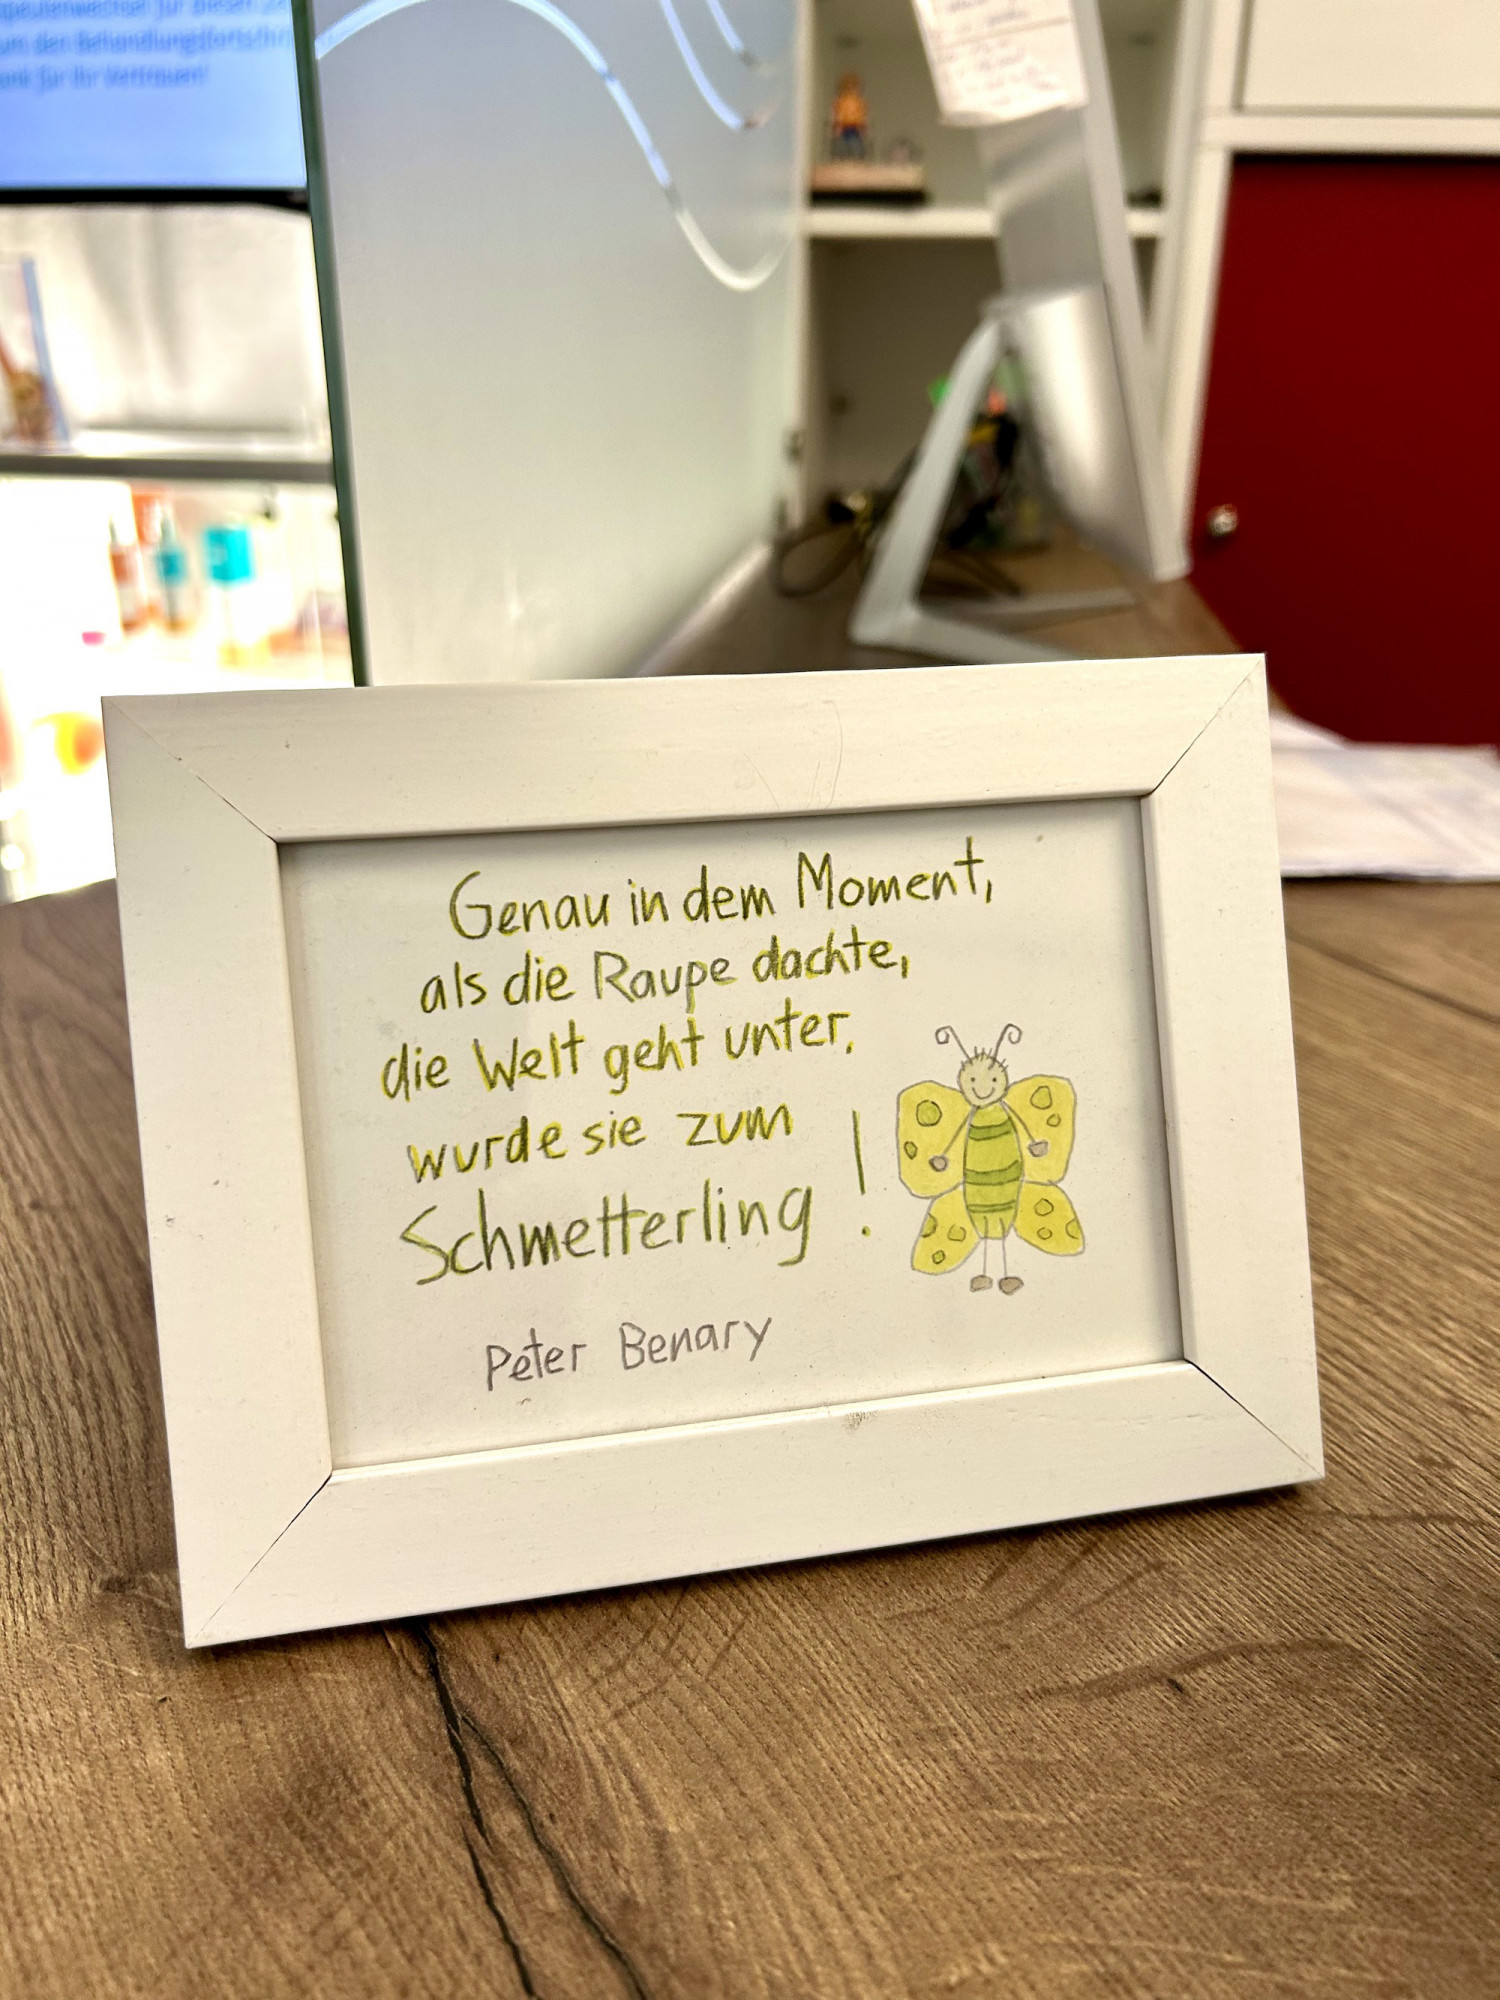 für diesen
um den Behandlungsfortschritt
für Ihr Vertrauen!
Genau in dem Moment,
als die Raupe dachte,
die Welt geht unter,
wurde sie zum
Schmetterling !
Peter Benary